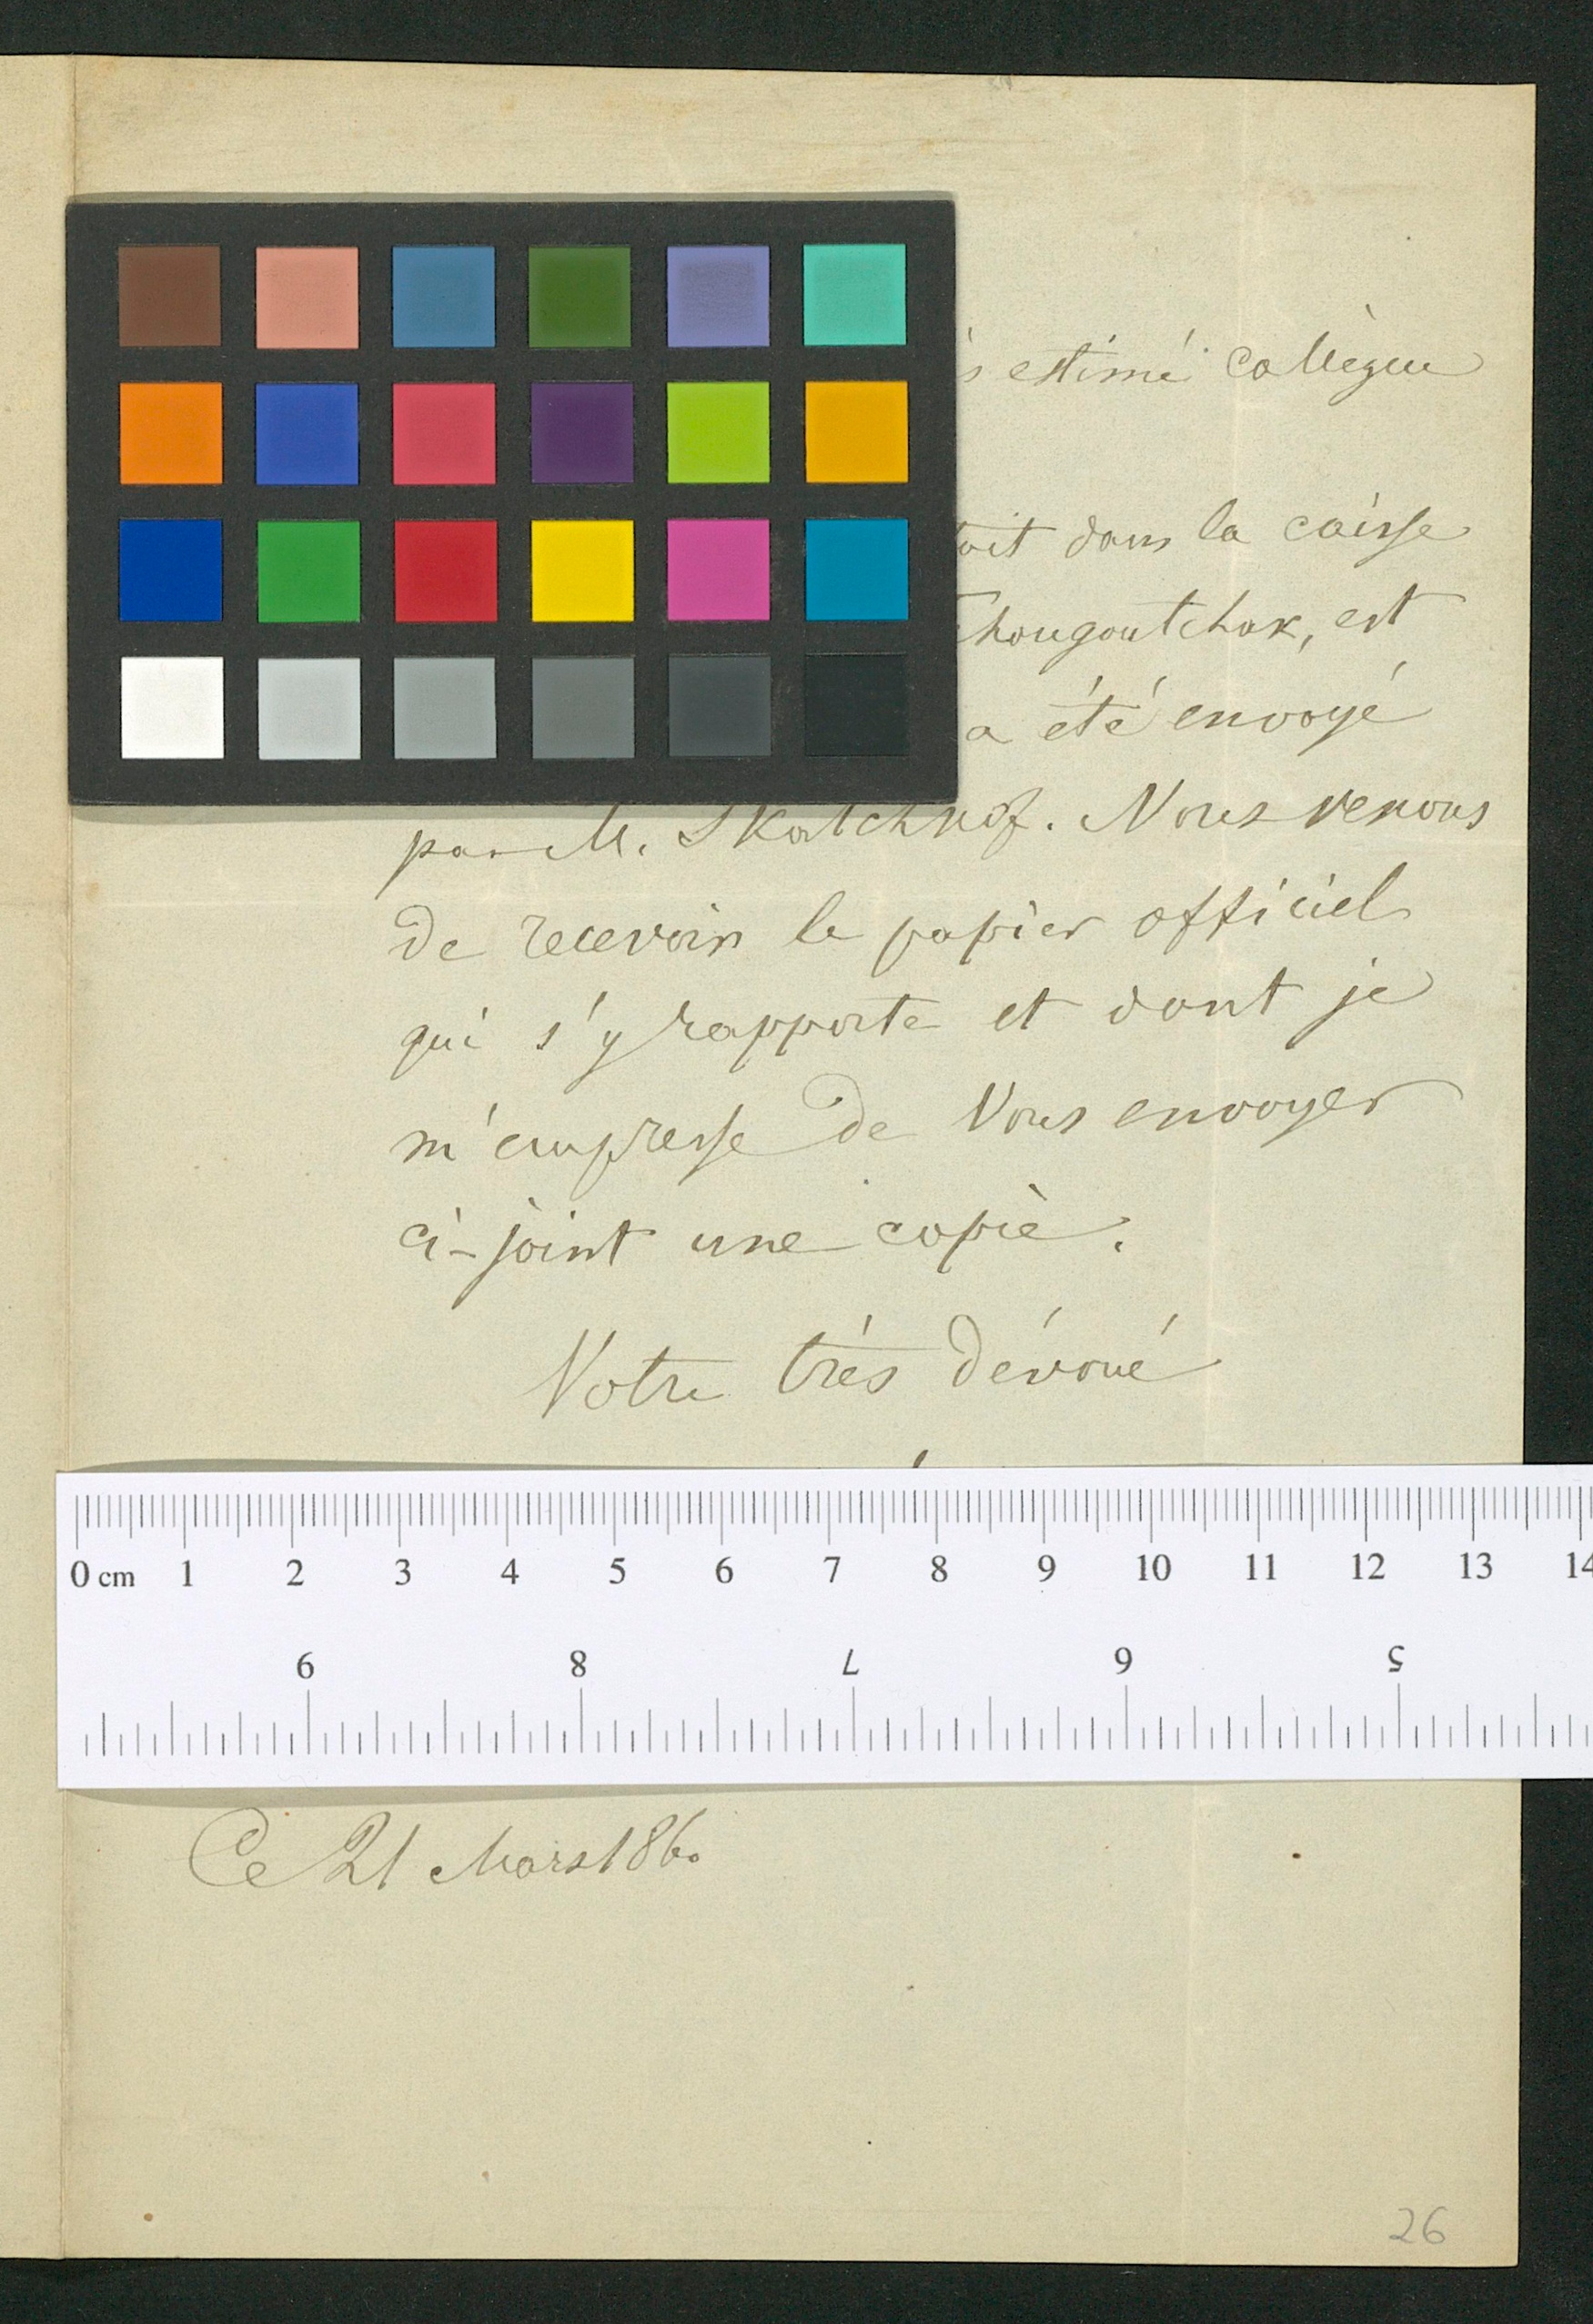 estimé collègue
dans la caisse
est
a été envoyé
par M. Skatchkof. Nous venons
de recevoir le papier officiel
qui s'y rapporte et dont je
m'empresse de Vous envoyer
ci-joint une copie.
Votre très dévoué
0 cm 1 2 3 4 5 6 7 8 9 10 11 12 13 14
9 8 7 6 5
Ce 21 Mars 1860
26